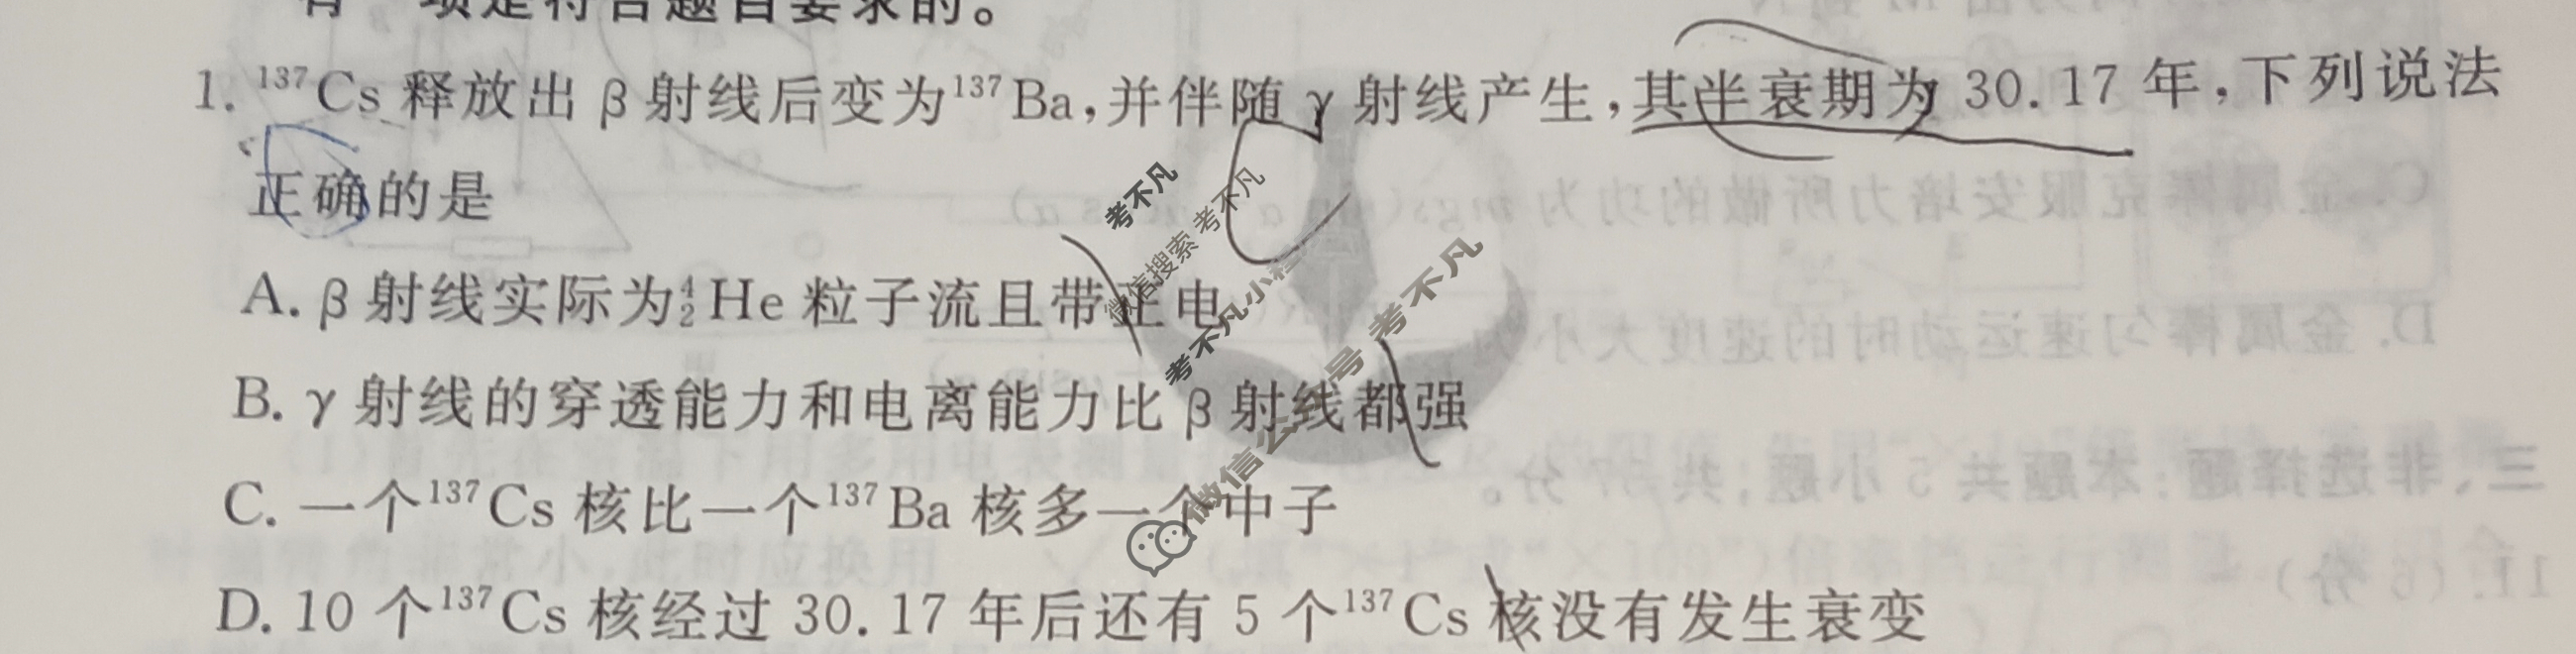 有一项是符合题目要求的。
1. ¹³⁷Cs 释放出 β 射线后变为¹³⁷Ba,并伴随 γ 射线产生,其半衰期为 30.17 年,下列说法
正确的是
A. β 射线实际为⁴₂He 粒子流且带正电
B. γ 射线的穿透能力和电离能力比 β 射线都强
C. 一个¹³⁷Cs 核比一个¹³⁷Ba 核多一个中子
D. 10 个¹³⁷Cs 核经过 30.17 年后还有 5 个¹³⁷Cs 核没有发生衰变
考不凡
微信搜索 考不凡
考不凡小程
微信公众号 考不凡
C. 金属棒克服安培力所做的功为
D. 金属棒匀速运动时的速度大小为
三、非选择题:本题共 5 小题,共 57 分。
11. (6 分)